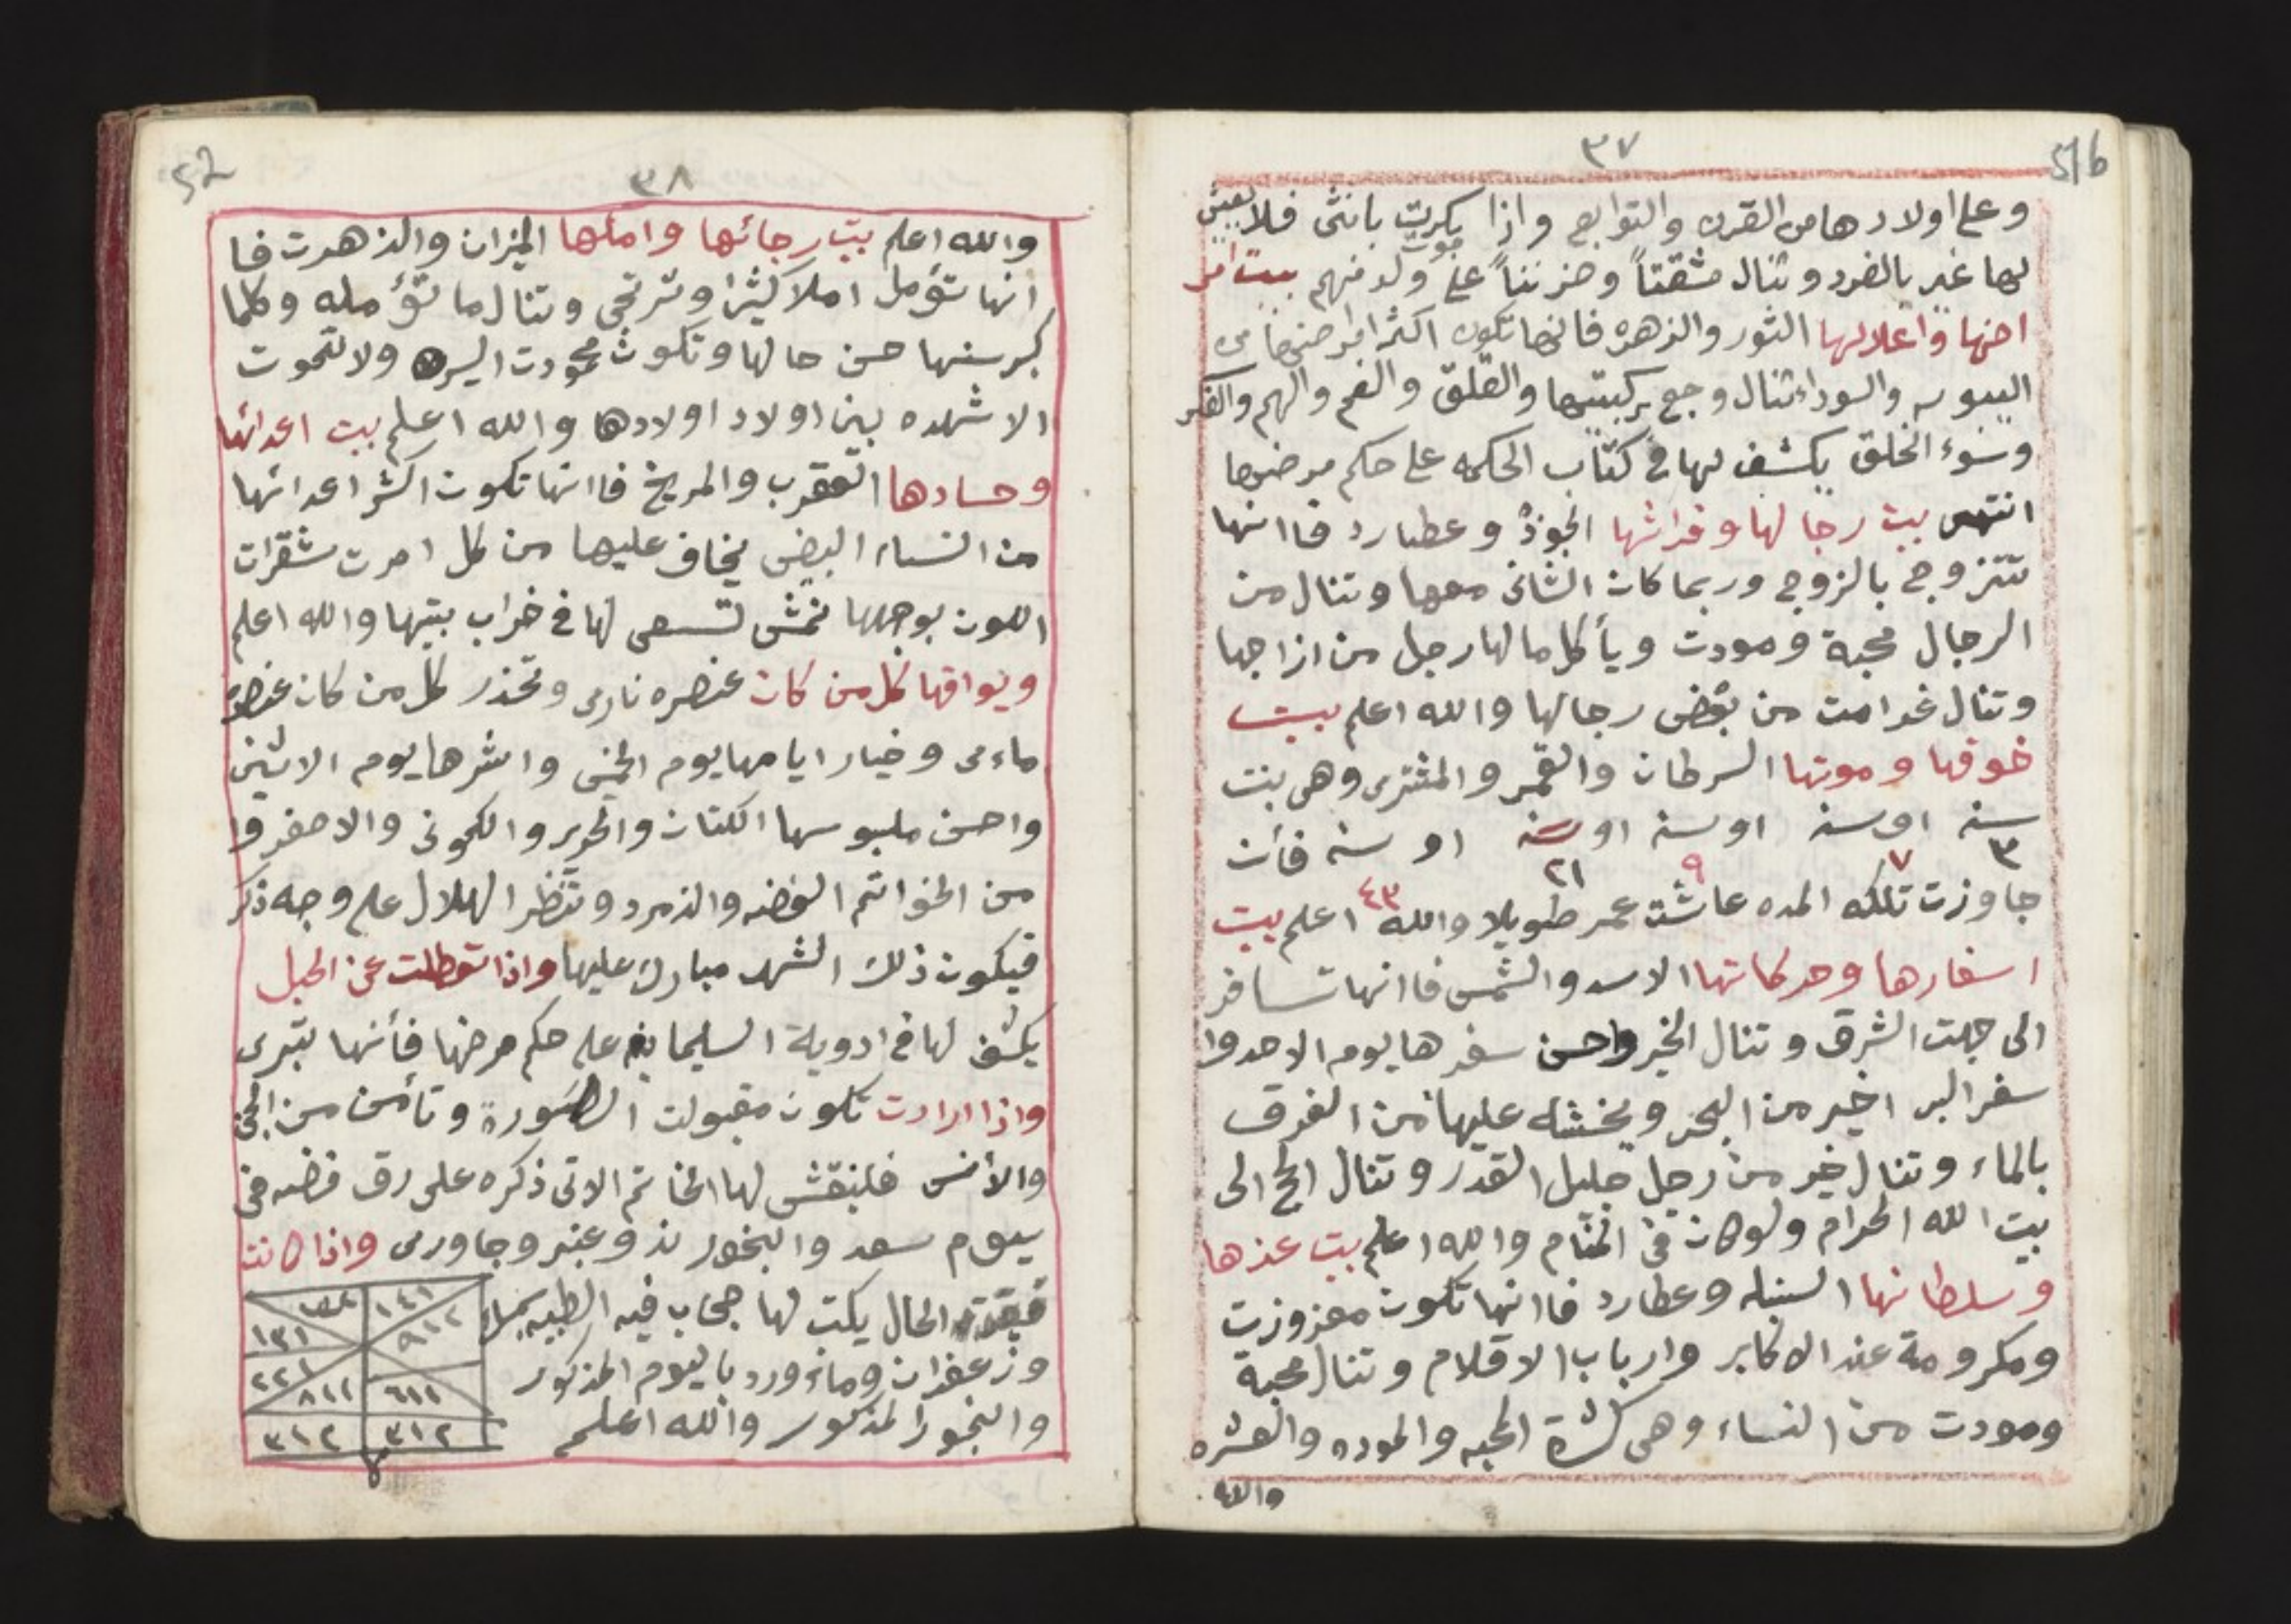 ٣٧
51b
وعلى اولادها من القرن والتوابع واذا بكريت بانثى فلا يعيش
لها غير بالفرد وتنال مشقتاً وحزنناً على موت ولد منهم بيت امر
اضها واعلالها الثور والزهره فانها تكون اكثر امراضها من
اليبوسه والسوداء تنال وجع بركبتيها والقلق والغم والهم والفكر
وسوء الخلق يكشف لها في كتاب الحكمه على حكم مرضها
انتهى بيت رجالها وفراشها الجوزه وعطارد فاانها
تتزوج بالزوج وربما كان الثانى معها وتنال من
الرجال محبة ومودت ويأكل مالها رجل من ازاجها
وتنال غرامت من بعض رجالها والله اعلم بيت
خوفها وموتها السرطان والقمر والمشترى وهى بنت
سنه او سنه او سنه او سنه او سنه فأن
٣ ٧ ٩ ٢١ ٤٣
جاوزت تلكه المده عاشت عمر طويلا والله اعلم بيت
اسفارها وحركاتها الاسد والشمس فاانها تسافر
الى جهت الشرق وتنال الخير واحسن سفرها يوم الاحد وا
سفر البر اخير من البحر ويخشه عليها من الغرق
بالماء وتنال خير من رجل جليل القدر وتنال الحج الى
بيت الله الحرام ولو كان فى المنام والله اعلم بيت عزها
وسلطانها السنبله وعطارد فاانها تكون معزوزت
ومكرومة عند الاكابر وارباب الاقلام وتنال محبة
ومودت من النساء وهى كثرة المحبه والموده والعشره
والله
٣٨
52
والله اعلم بيت رجائها واملها الميزان والزهرت فا
انها تؤمل املا كثيرا وترتجى وتنال ما تؤمله وكلما
كبر سنها حسن حالها وتكون محمودت السيره ولا تموت
الا شهده بين اولاد اولادها والله اعلم بيت اعدائها
وحسادها العقرب والمريخ فاانها تكون اكثر اعدائها
من النساء البيض يخاف عليها من كل امرت شقرات
اللون بوجهها نمش تسعى لها فى خراب بيتها والله اعلم
ويوافقها كل من كان عنصره نارى وتحذر كل من كان عنصره
ماءى وخيار ايامها يوم الخميس واشرها يوم الاثنين
واحسن ملبوسها الكتان والحرير والكمونى والاصفر وا
من الخواتم الفضه والزمرد وتنظر الهلال على وجه ذكر
فيكون ذلك الشهر مبارك عليها واذا تعطلت عن الحبل
يكشف لها فى ادوية السليمانيه على حكم مرضها فأنها تبرى
واذا ارادت تكون مقبولت الصورة وتأمن من الجن
والأنس فلينقش لها الخاتم الاتى ذكره على رق فضه فى
يوم سعد والبخور ند وعنبر وجاورى واذا كانت
الحال يكت لها حجاب فيه الطبيه بماء
وزعفران وماء ورد باليوم المذكور
والبخور المذكور والله اعلم
١٤١
٩١٢
١٣١
٢٢١
٨١١
٦١١
٣١٢
٣١٢